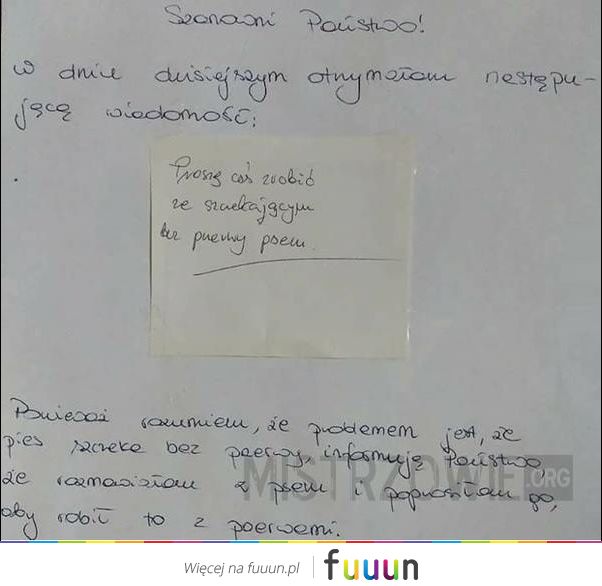 Szanowni Państwo!
w dniu dzisiejszym otrzymałam następu-
jącą wiadomość:
Proszę coś zrobić
ze szczekającym
bez przerwy psem.
Ponieważ rozumiem, że problemem jest, że
pies szczeka bez przerwy, informuję Państwo,
że rozmawiałam z psem i poprosiłam go,
aby robił to z przerwami.
MISTRZOWIE.ORG
Więcej na fuuun.pl | fuuun